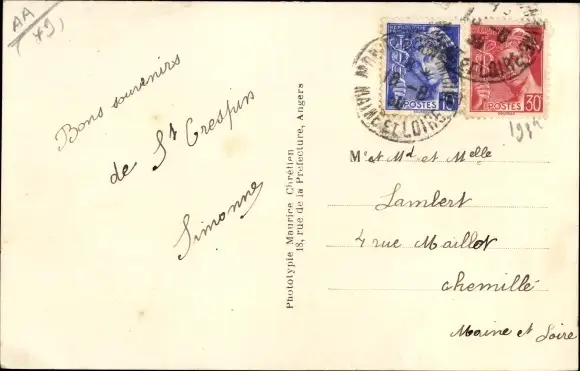 AA
49)
Bons souvenirs
de St Crespin
Simonne
Phototypie Maurice Chrétien
18, rue de la Préfecture, Angers
POSTES
POSTES 30c
MAINE ET LOIRE
ET LOIRE
Mr et Md et Melle
Lambert
4 rue Maillot
chemillé
Maine et Loire